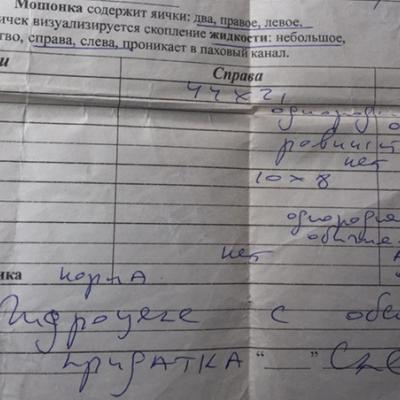 Мошонка содержит яички: два, правое, левое.
ичек визуализируется скопление жидкости: небольшое,
тво, справа, слева, проникает в паховый канал.
и Справа
44 х 21
однород
нет
10 х 8
однородн
обычн
нет
ика норма
Гидроцеле с обе
придатка “ ”